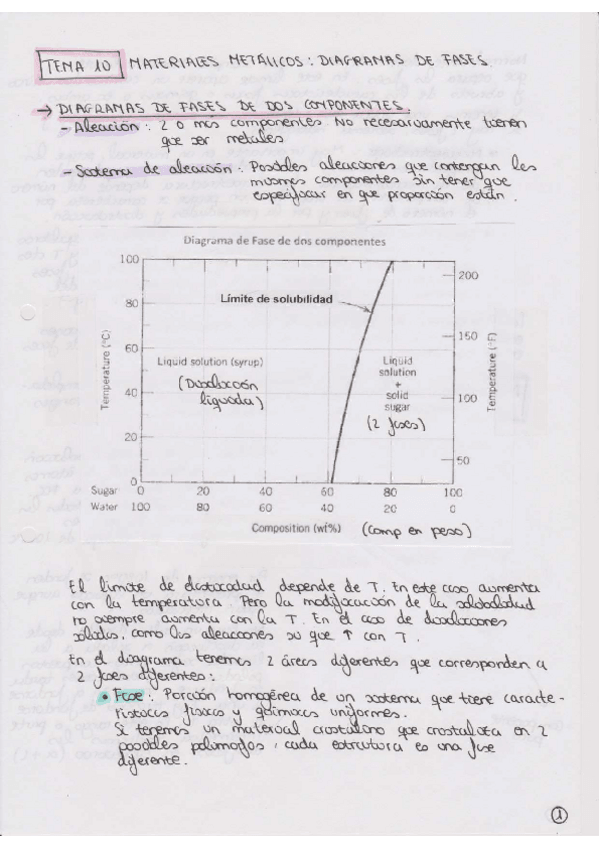 TEMA 10 MATERIALES METÁLICOS: DIAGRAMAS DE FASES.
→ DIAGRAMAS DE FASES DE DOS COMPONENTES.
- Aleación: 2 o más componentes No necesariamente tienen
que ser metales
- Sistema de aleación: Posibles aleaciones que contengan les
mismos componentes sin tener que
especificar en que proporción están.
Diagrama de Fase de dos componentes
100
80
60
40
20
0
Temperature (°C)
200
150
100
50
Temperature (°F)
Límite de solubilidad
Liquid solution (syrup)
(Disolución
líquida)
Liquid
solution
+
solid
sugar
(2 fases)
Sugar 0 20 40 60 80 100
Water 100 80 60 40 20 0
Composition (wt%) (Comp en peso)
El límite de elasticidad depende de T. En este caso aumenta
con la temperatura. Pero la modificación de la solubilidad
no siempre aumenta con la T. En el caso de disoluciones
sólidas, como las aleaciones si que ↑ con T.
En el diagrama tenemos 2 áreas diferentes que corresponden a
2 fases diferentes:
• Fase: Porción homogénea de un sistema que tiene caracte-
rísticas físicas y químicas uniformes.
Si tenemos un material cristalino que cristaliza en 2
posibles polimorfos, cada estructura es una fase
diferente.
1